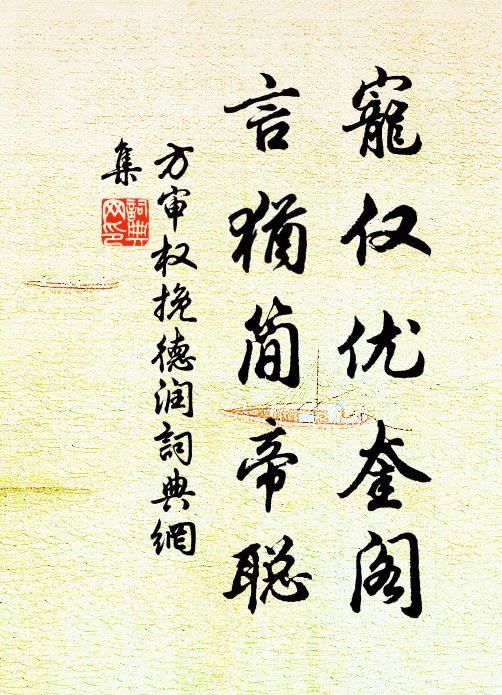 寵仅优奎阁
言猶简帝聪
方审权挽德润詞典網
集
詞典网印